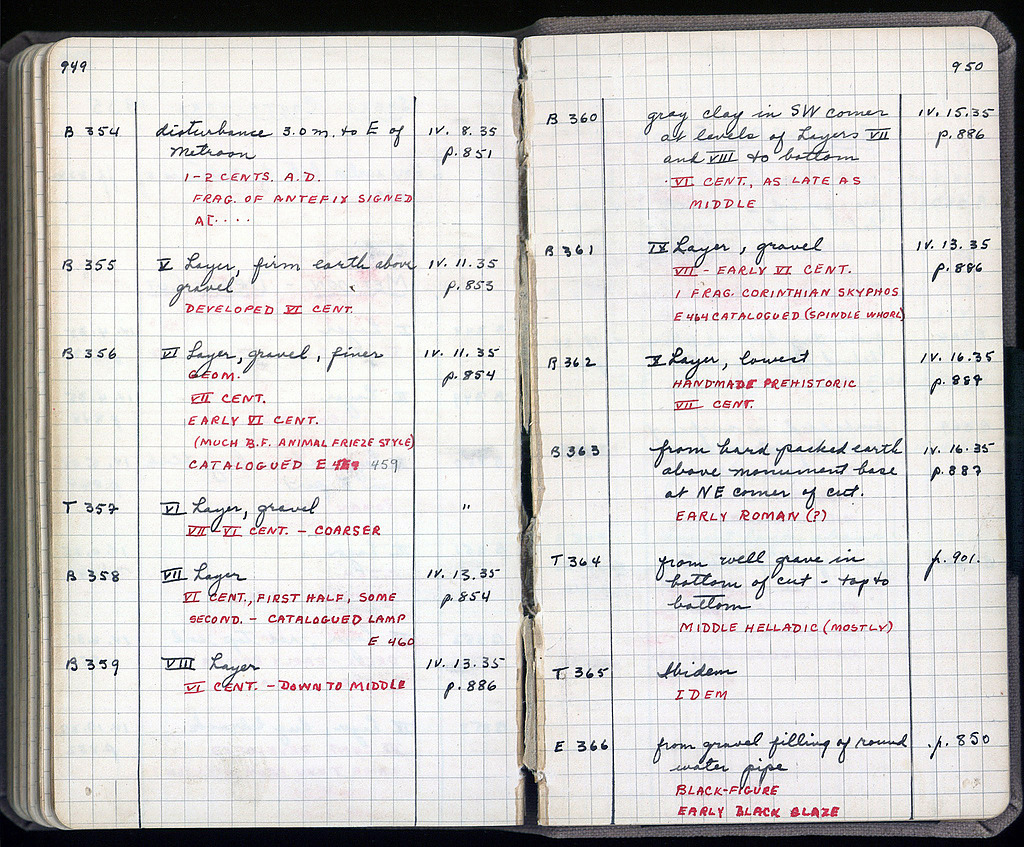 949
B 354 disturbance 3.0 m. to E of IV. 8.35
Metroon p. 851
1-2 CENTS. A.D.
FRAG. OF ANTEFIX SIGNED
A[····
B 355 V Layer, firm earth above IV. 11.35
gravel p. 853
DEVELOPED VI CENT.
B 356 VI Layer, gravel, finer IV. 11.35
GEOM. p. 854
VII CENT.
EARLY VI CENT.
(MUCH B.F. ANIMAL FRIEZE STYLE)
CATALOGUED E 459
T 357 VI Layer, gravel "
VII-VI CENT. - COARSER
B 358 VII Layer IV. 13.35
VI CENT., FIRST HALF, SOME p. 854
SECOND. - CATALOGUED LAMP
E 460
B 359 VIII Layer IV. 13.35
VI CENT. - DOWN TO MIDDLE p. 886
950
B 360 gray clay in SW corner IV. 15.35
at levels of Layers VII p. 886
and VIII to bottom
VI CENT., AS LATE AS
MIDDLE
B 361 IX Layer, gravel IV. 13.35
VII - EARLY VI CENT. p. 886
1 FRAG. CORINTHIAN SKYPHOS
E 464 CATALOGUED (SPINDLE WHORL)
B 362 X Layer, lowest IV. 16.35
HANDMADE PREHISTORIC p. 887
VII CENT.
B 363 from hard packed earth IV. 16.35
above monument base p. 887
at NE corner of cut.
EARLY ROMAN (?)
T 364 from well grave in p. 901.
bottom of cut - top to
bottom
MIDDLE HELLADIC (MOSTLY)
T 365 Ibidem
IDEM
E 366 from gravel filling of round p. 850
water pipe
BLACK-FIGURE
EARLY BLACK GLAZE